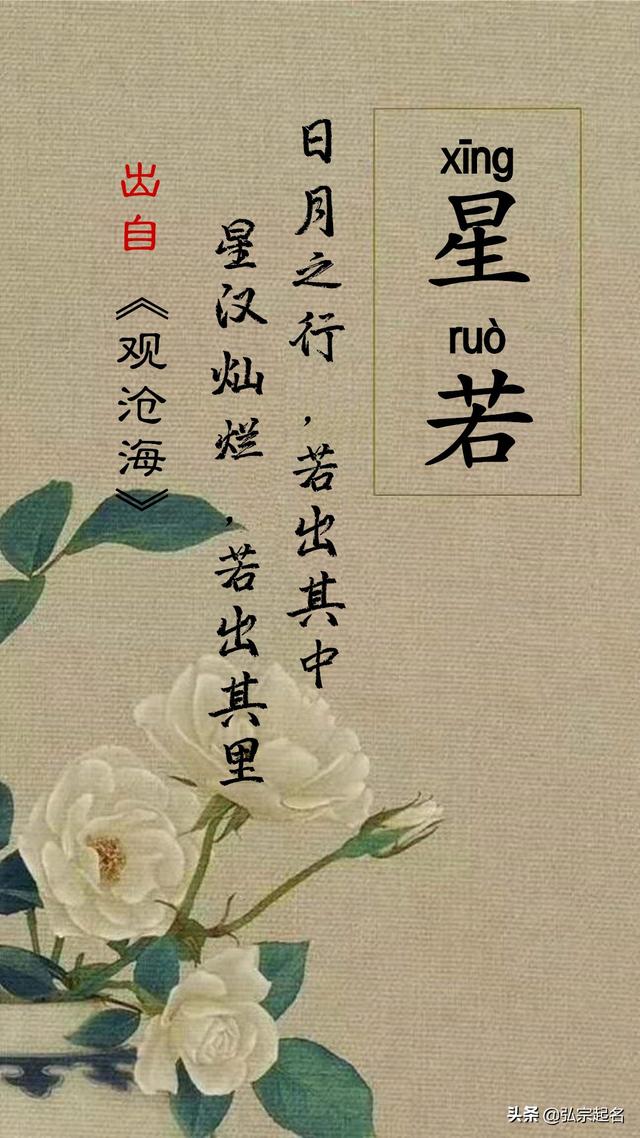 xīng
星
ruò
若
日月之行，若出其中
星汉灿烂，若出其里
出自《观沧海》
头条 @弘宗起名